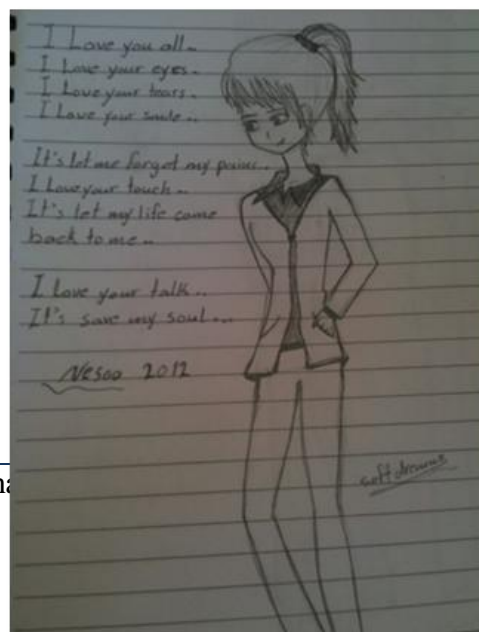 I Love you all..
I Love your eyes..
I Love your tears..
I Love your smile...
It's let me forget my pains...
I Love your touch..
It's let my life come
back to me..
I Love your talk..
It's save my soul...
Nesoo 2012
soft dreams